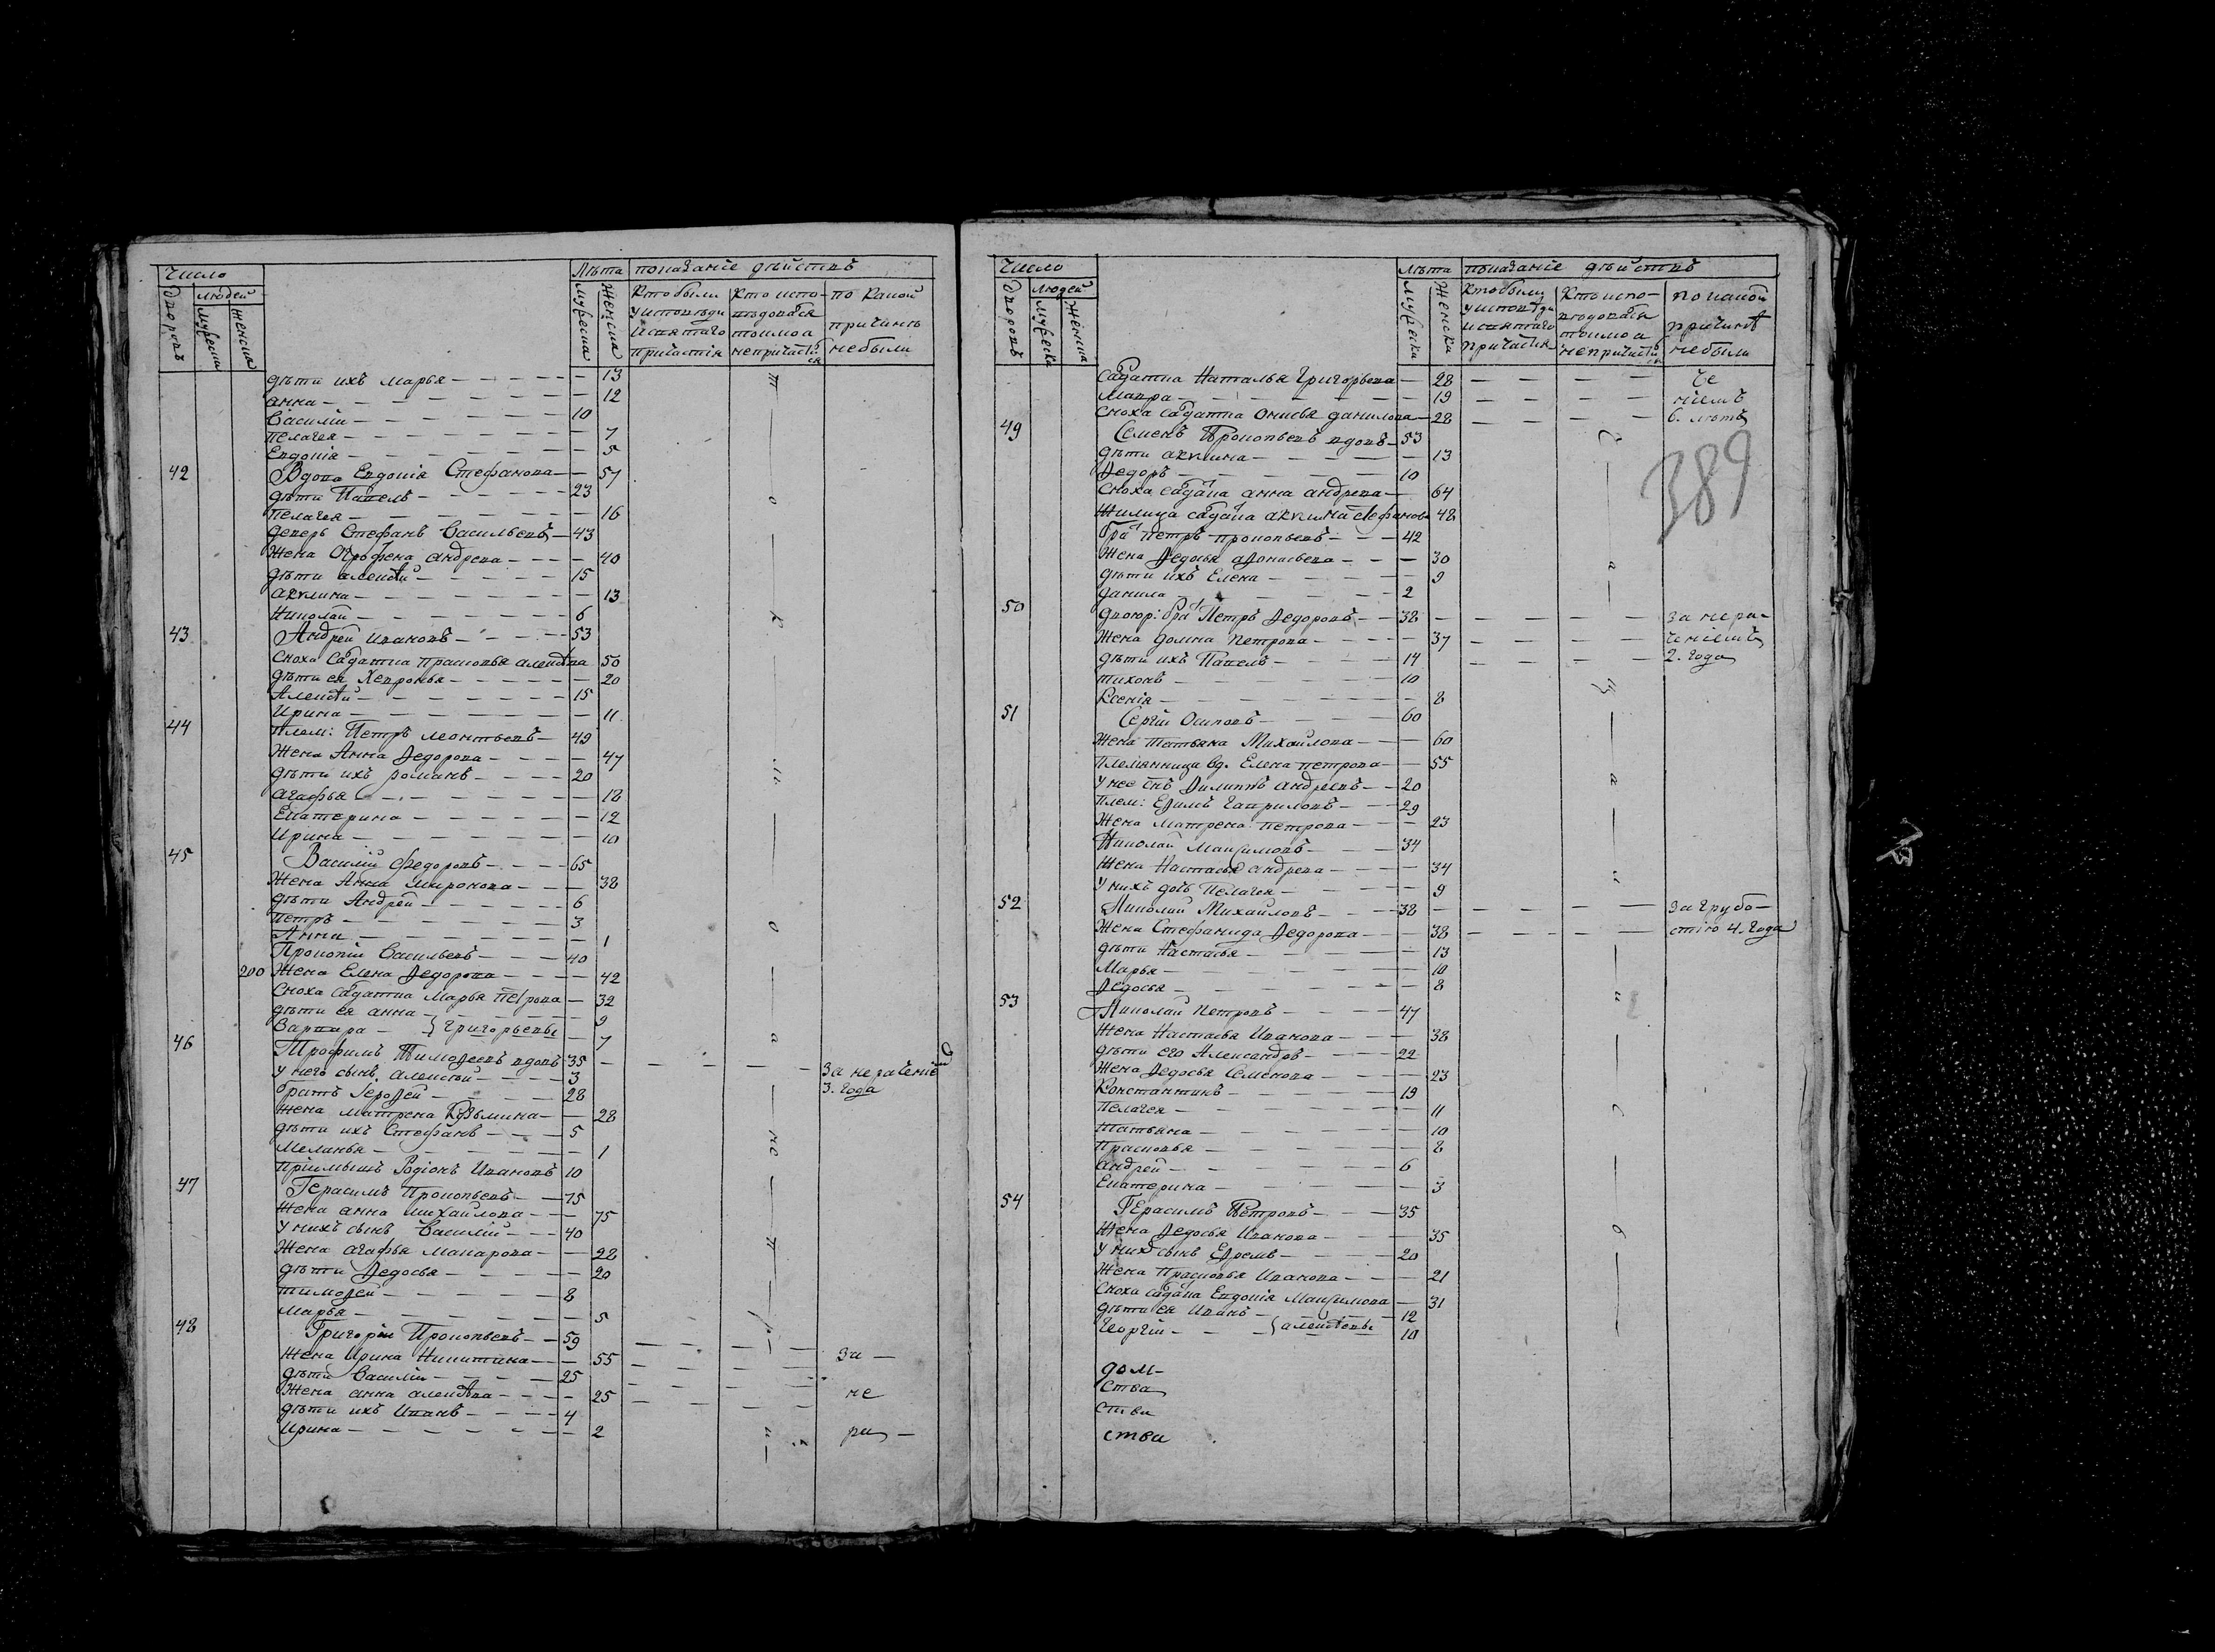 Число
Людей
Дворовъ
Мужеска
Женска
Лѣта
Мужеска
Женска
показанiе дѣйствъ
Кто были
у исповѣди
и святаго
причастiя
Кто испо-
вѣдовался
токмо а
непричастился
по какой
причинѣ
не были
дѣти ихъ Марья — 13
Анна — 12
Василiй — 10
Пелагея — 7
Евдокiя — 5
42 Вдова Евдокiя Стефанова — 57
дѣти Павелъ — 23
Пелагея — 16
деверь Стефанъ Васильевъ — 43
Жена Ографена Андрева — 40
дѣти Алексѣй — 15
Акилина — 13
Николай — 6
43 Андрей Ивановъ — 53
сноха салдатка Прасковья Алексѣва 50
дѣти ея Хевронья — 20
Алексѣй — 15
Ирина — 11
44 Плем: Петръ Леонтьевъ — 49
Жена Анна Ѳедорова — 47
дѣти ихъ Романъ — 20
Агафья — 18
Екатерина — 12
Ирина — 10
45 Василiй Федоровъ — 65
Жена Анна Миронова — 38
дѣти Андрей — 6
Петръ — 3
Анна — 1
Прокопiй Васильевъ — 40
200 Жена Елена Ѳедорова — 42
Сноха салдатка Марья Петрова — 32
дѣти ея Анна — 9
Варвара — } Григорьевы — 7
46 Трофимъ Тимоѳеевъ вдовъ 35 — за нераченiемъ
у него сынъ Алексѣй — 3 3. года
братъ Iероѳей — 28
Жена Матрена Козьмина — 28
дѣти ихъ Стефанъ — 5
Меланья — 1
Прiимышъ Родiонъ Ивановъ 10
47 Герасимъ Прокопьевъ — 75
Жена Анна Михайлова — 75
у нихъ сынъ Василiй — 40
Жена Агафья Макарова — 28
дѣти Ѳедосья — 20
Тимоѳей — 8
Марья — 5
48 Григорiй Прокопьевъ — 59
Жена Ирина Никитина — 55 за —
дѣти Василiй — 25
Жена Анна Алексѣва — 25 не
дѣти ихъ Иванъ — 4
Ирина — 2 ра —
Число
Людей
Дворовъ
Мужеска
Женска
Лѣта
Мужеска
Женска
показанiе дѣйствъ
Кто были
у исповѣди
и святаго
причастiя
Кто испо-
вѣдовался
токмо а
непричастился
по какой
причинѣ
не были
салдатка Наталья Григорьева — 28 — че
Мавра — 19 — нiемъ
сноха салдатка Онисья Данилова — 28 — 6. лѣтъ
49 Семенъ Прокопьевъ вдовъ — 53
дѣти Акилина — 13
Ѳедоръ — 10
389
Сноха салдатка Анна Андрева — 64
Жилица салдатка Акилина Стефанова 48
братъ Петръ Прокопьевъ — 42
Жена Ѳедосья Аѳонасьева — 30
дѣти ихъ Елена — 9
Данила — 2
50 двоюр: братъ Петръ Ѳедоровъ — 38 — за нера-
Жена Домна Петрова — 37 — ченiемъ
дѣти ихъ Павелъ — 14 — 2. года
Тихонъ — 10
Ксенiя — 8
51 Сергiй Осиповъ — 60
Жена Татьяна Михайлова — 60
Племянница вд. Елена Петрова — 55
у нее сынъ Ѳилиппъ Андреевъ — 20
Плем: Еѳимъ Гавриловъ — 29
Жена Матрена Петрова — 23
Николай Максимовъ — 34
Жена Настасья Андрева — 34
у нихъ дочь Пелагея — 9
52 Николай Михайловъ — 38 — за грубо-
Жена Стефанида Ѳедорова — 38 — стiю 4. года
дѣти Настасья — 13
Марья — 10
Ѳедосья — 8
53 Николай Петровъ — 47
Жена Настасья Иванова — 38
дѣти его Александръ — 22
Жена Ѳедосья Семенова — 23
Константинъ — 19
Пелагея — 11
Татьяна — 10
Прасковья — 8
Андрей — 6
Екатерина — 3
54 Герасимъ Петровъ — 35
Жена Ѳедосья Иванова — 35
у нихъ сынъ Еѳремъ — 20
Жена Прасковья Иванова — 21
Сноха салдатка Евдокiя Максимова — 31
дѣти ея Иванъ — 12
Георгiй — } Алексѣевы 10
дом-
ства
ства
ства